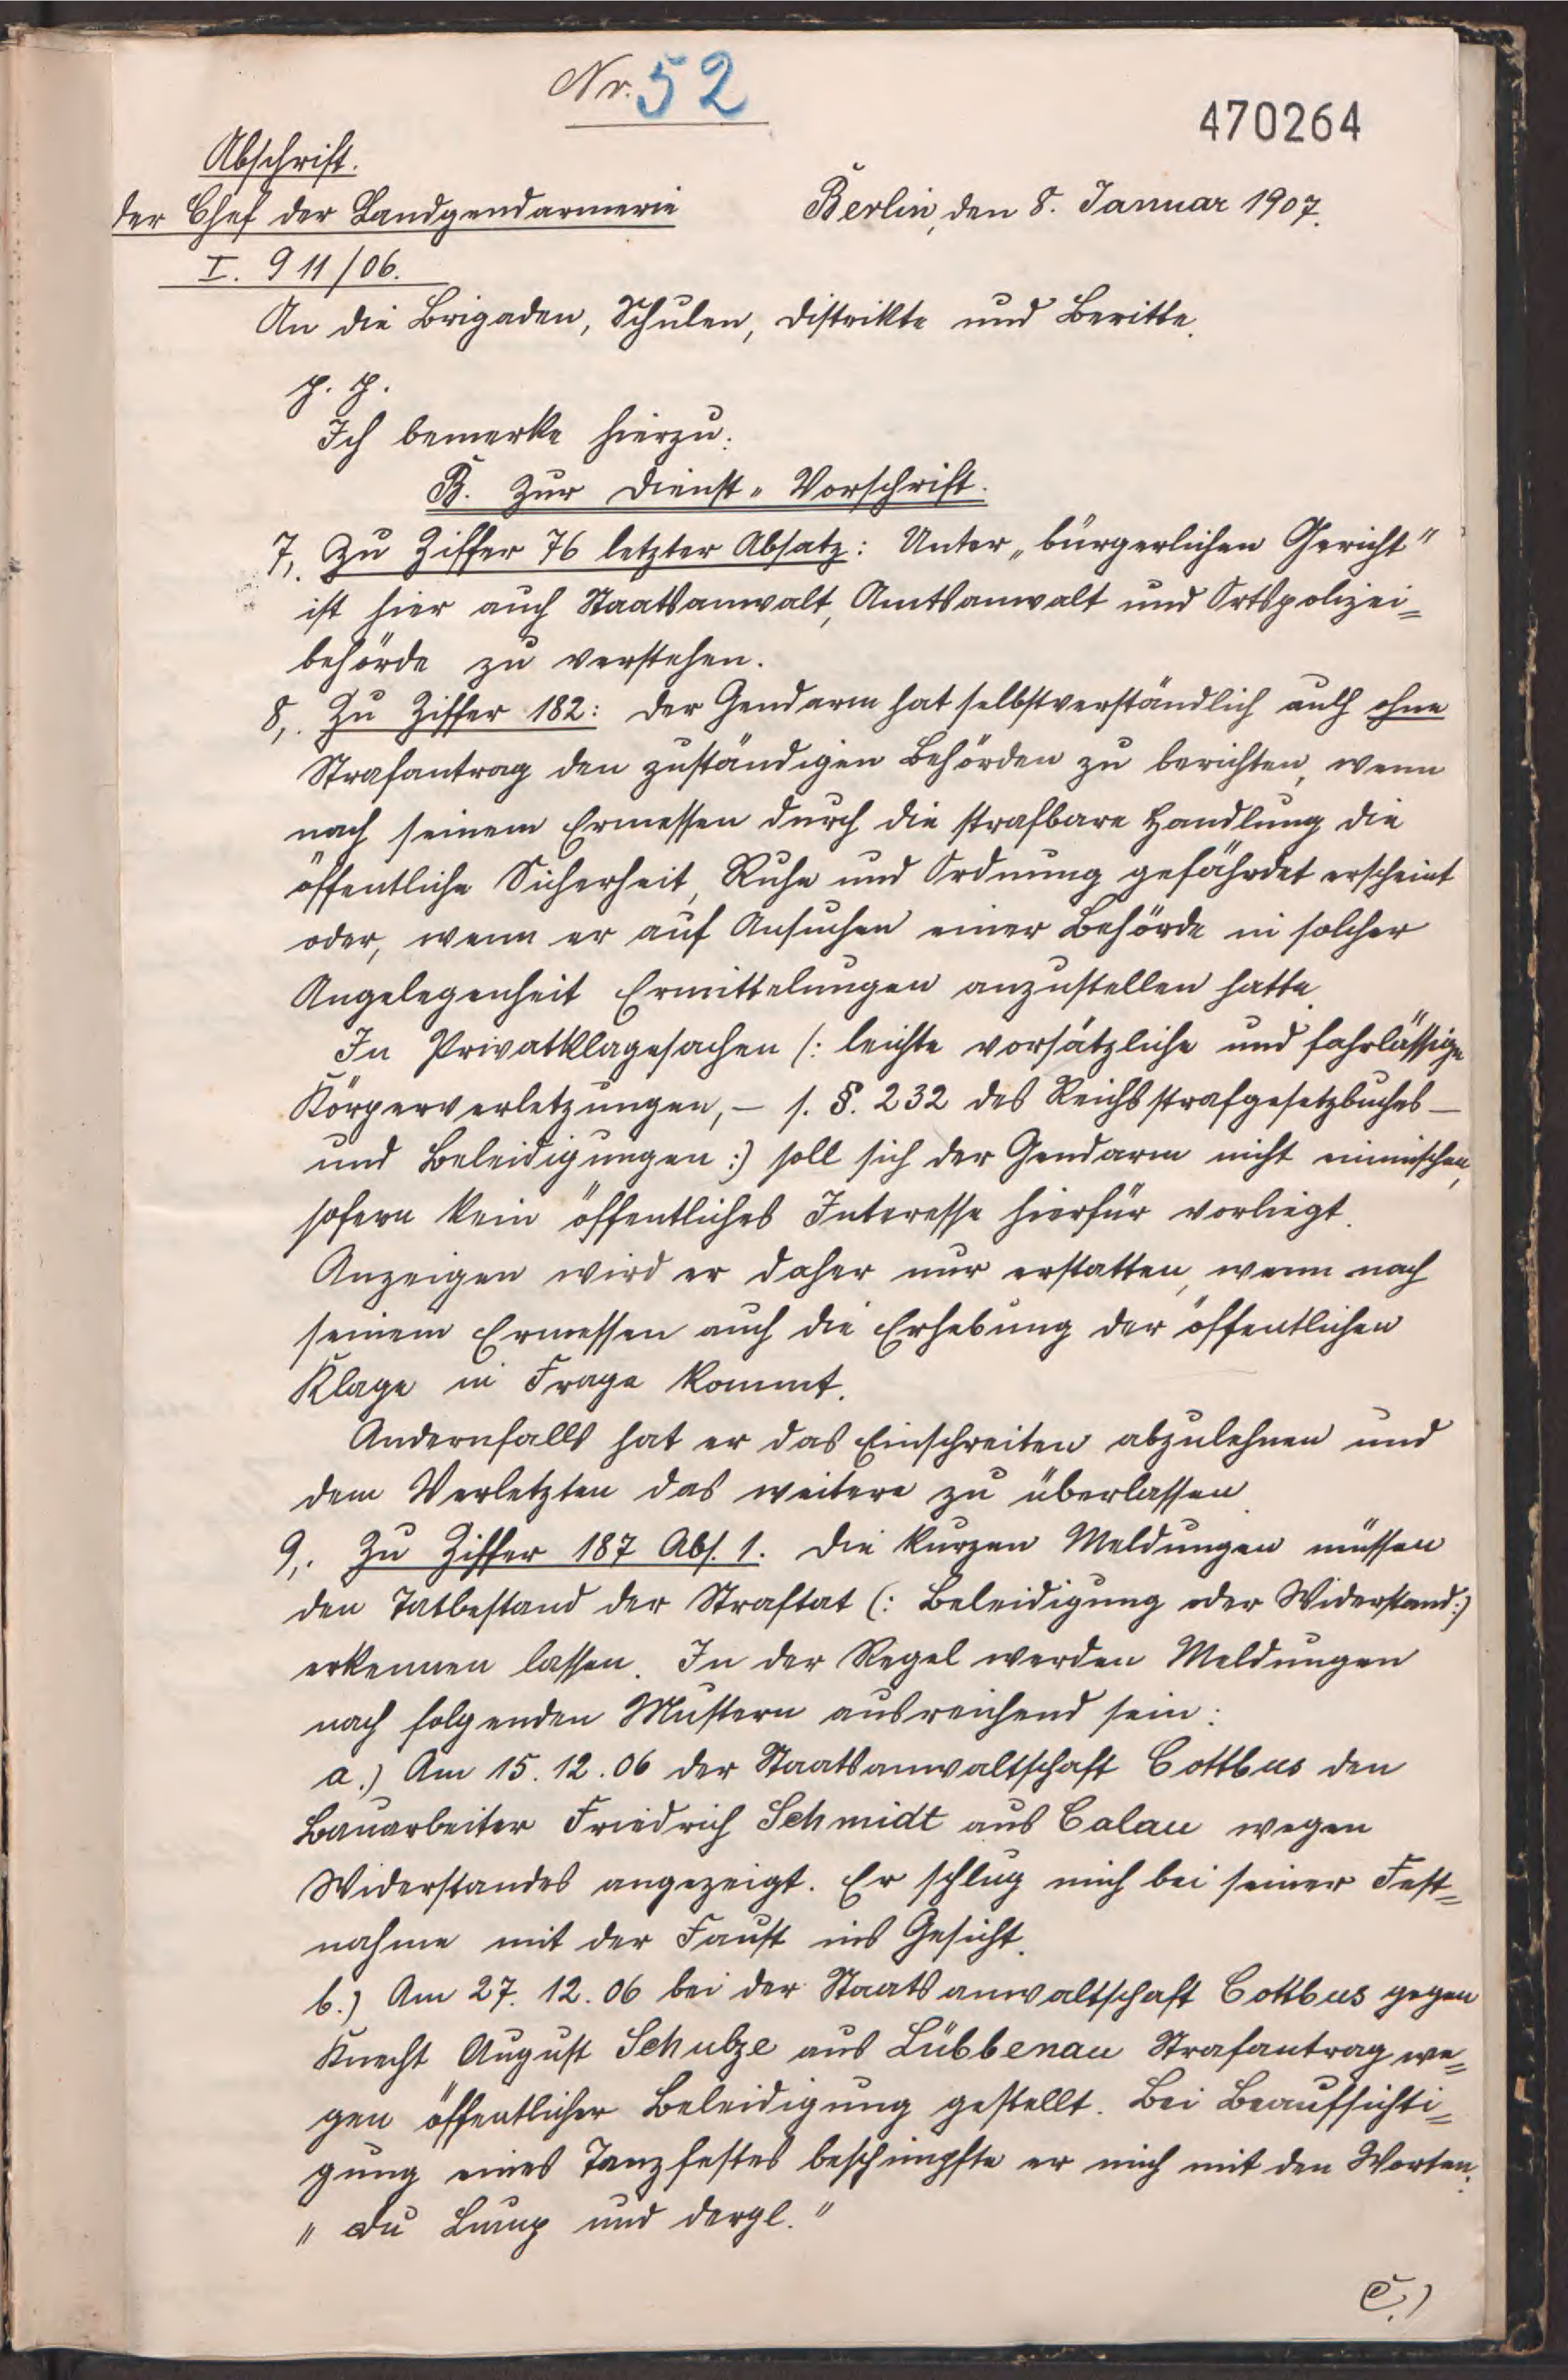 Nr. 52
470264
Abschrift.
Der Chef der Landgendarmerie
Berlin, den 8. Januar 1907.
I. 911/06.
An die Brigaden, Schulen, Distrikte und Beritte.
p. p.
Ich bemerke hierzu:
B. Zur Dienst-Vorschrift.
7,. Zu Ziffer 76 letzter Absatz: Unter „bürgerlichen Gericht"
ist hier auch Staatsanwalt, Amtsanwalt und Ortspolizei=
behörde zu verstehen.
8,. Zu Ziffer 182: Der Gendarm hat selbstverständlich auch ohne
Strafantrag den zuständigen Behörden zu berichten, wenn
nach seinem Ermessen durch die strafbare Handlung die
öffentliche Sicherheit, Ruhe und Ordnung gefährdet erscheint
oder, wenn er auf Ansuchen einer Behörde in solcher
Angelegenheit Ermittelungen anzustellen hatte.
In Privatklagesachen (: leichte vorsätzliche und fahrlässige
Körperverletzungen, – s. §. 232 des Reichsstrafgesetzbuches –
und Beleidigungen :) soll sich der Gendarm nicht einmischen,
sofern kein öffentliches Interesse hierfür vorliegt.
Anzeigen wird er daher nur erstatten, wenn nach
seinem Ermessen auch die Erhebung der öffentlichen
Klage in Frage kommt.
Andernfalls hat er das Einschreiten abzulehnen und
dem Verletzten das weitere zu überlassen.
9,. Zu Ziffer 187 Abs. 1. Die kurzen Meldungen müssen
den Tatbestand der Straftat (: Beleidigung oder Widerstand :)
erkennen lassen. In der Regel werden Meldungen
nach folgenden Mustern ausreichend sein:
a.) Am 15.12.06 der Staatsanwaltschaft Cottbus den
Bauarbeiter Friedrich Schmidt aus Calau wegen
Widerstandes angezeigt. Er schlug mich bei seiner Fest=
nahme mit der Faust ins Gesicht.
b.) Am 27.12.06 bei der Staatsanwaltschaft Cottbus gegen
Knecht August Schulze aus Lübbenau Strafantrag we=
gen öffentlicher Beleidigung gestellt. Bei Beaufsichti=
gung eines Tanzfestes beschimpfte er mich mit den Worten:
„Du Lump und dergl."
c.)